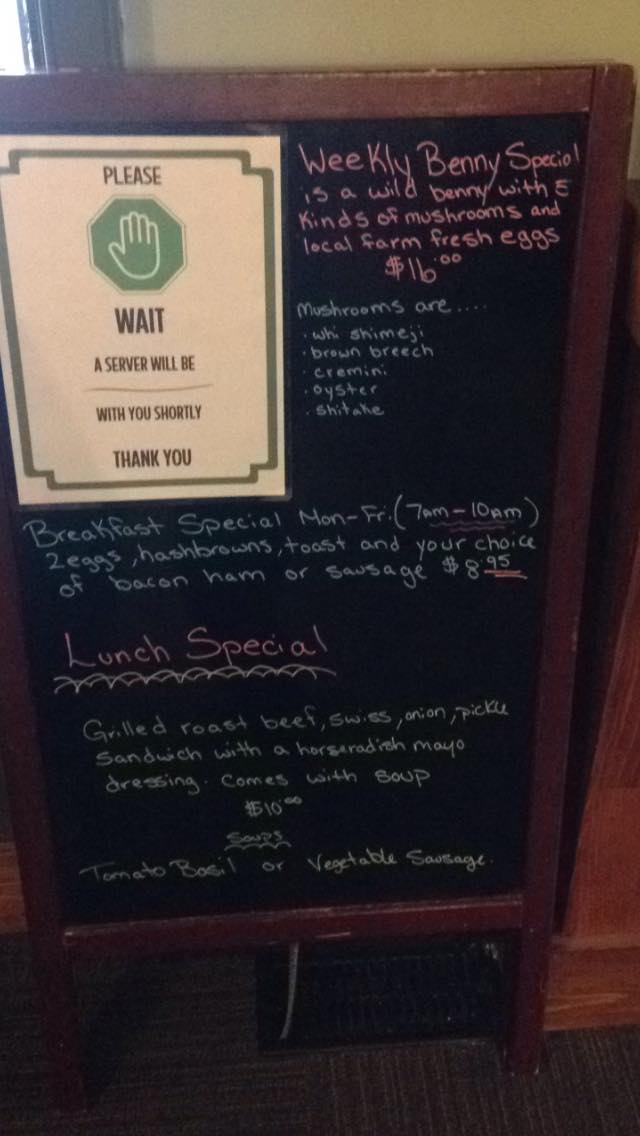 PLEASE
WAIT
A SERVER WILL BE
WITH YOU SHORTLY
THANK YOU
Weekly Benny Special
is a wild benny with 5
kinds of mushrooms and
local farm fresh eggs
$16.00
Mushrooms are....
· whi shimeji
· brown breech
· cremini
· oyster
· shitake
Breakfast Special Mon-Fri (7am-10am)
2 eggs, hashbrowns, toast and your choice
of bacon ham or sausage $8.95
Lunch Special
Grilled roast beef, swiss, onion, pickle
Sandwich with a horseradish mayo
dressing. Comes with soup
$10.00
Soups
Tomato Basil or Vegetable Sausage.